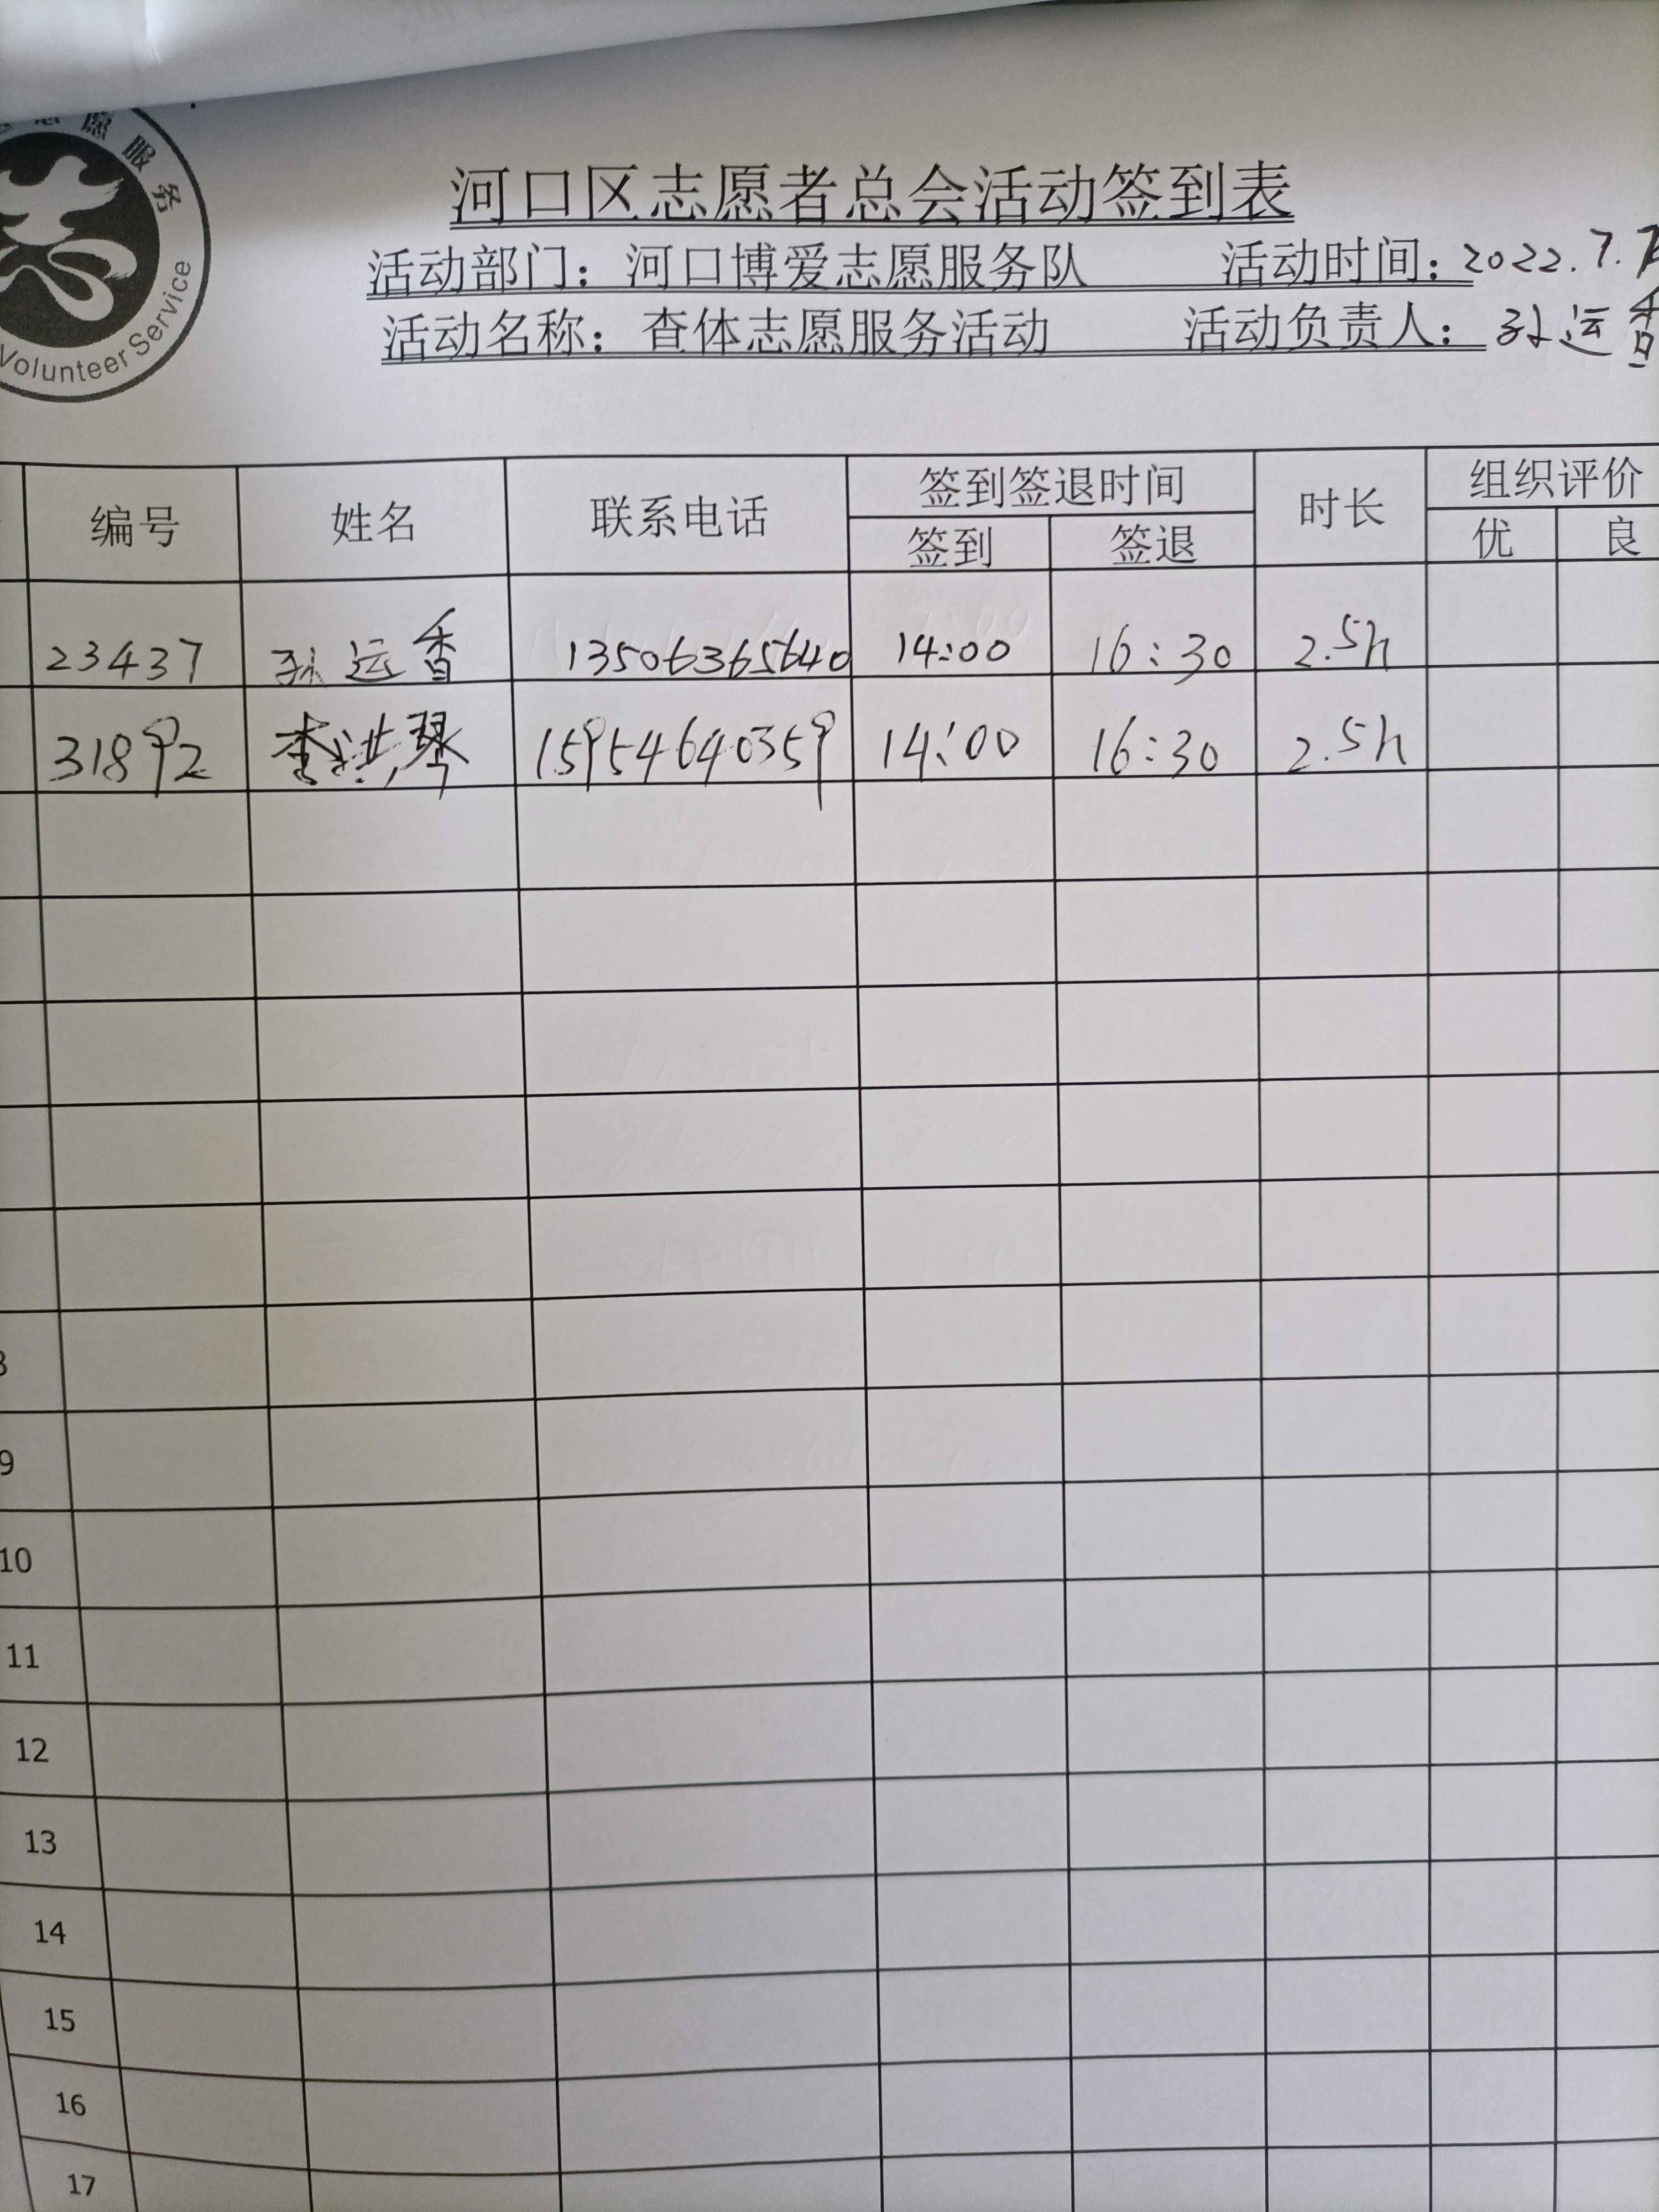 愿服务
Volunteer Service
河口区志愿者总会活动签到表
活动部门：河口博爱志愿服务队 活动时间：2022.7.
活动名称：查体志愿服务活动 活动负责人：孙运香
编号 姓名 联系电话 签到签退时间 时长 组织评价
签到 签退 优 良
23437 孙运香 13506365640 14:00 16:30 2.5h
31892 李洪琴 15954640359 14:00 16:30 2.5h
8
9
10
11
12
13
14
15
16
17